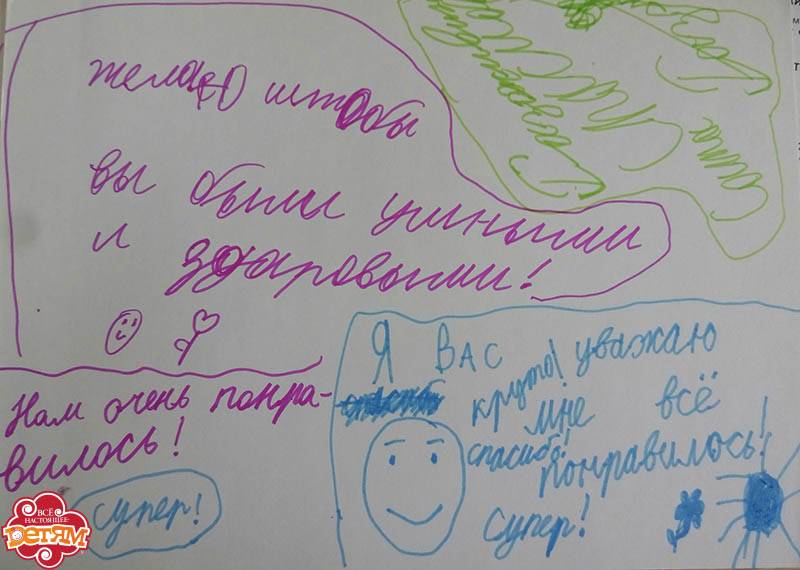 желаю штобы
вы были умными
и здаровыми!
Нам очень понра-
вилось!
супер!
Я Вас уважаю
круто!
мне всё
спасибо!
понравилось!
супер!
ВСЁ
НАСТОЯЩЕЕ
ДЕТЯМ